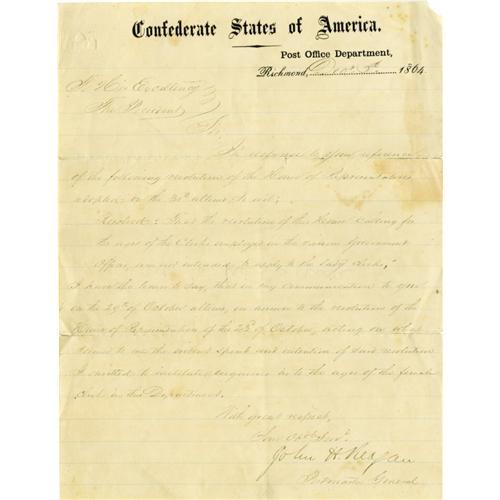 Confederate States of America.
Post Office Department,
Richmond, Dec 2d 1864.
To His Excellency
The President
Sir,
In response to your reference
of the following resolution of the House of Representatives
adopted on the ultimo to wit;
Resolved: That the resolution of this House calling for
the ages of the Clerks employed in the various Government
Offices, are not intended to apply to the lady Clerks,"
I have the honor to say, that in my communication to you
on the 29th of October ultimo, in answer to the resolution of the
House of Representatives of the of October, acting on what
seemed to me the evident spirit and intention of said resolution
I omitted to institute enquiries as to the ages of the female
Clerks in this Department.
With great respect,
Your Obt Servt
John H. Reagan
Postmaster General